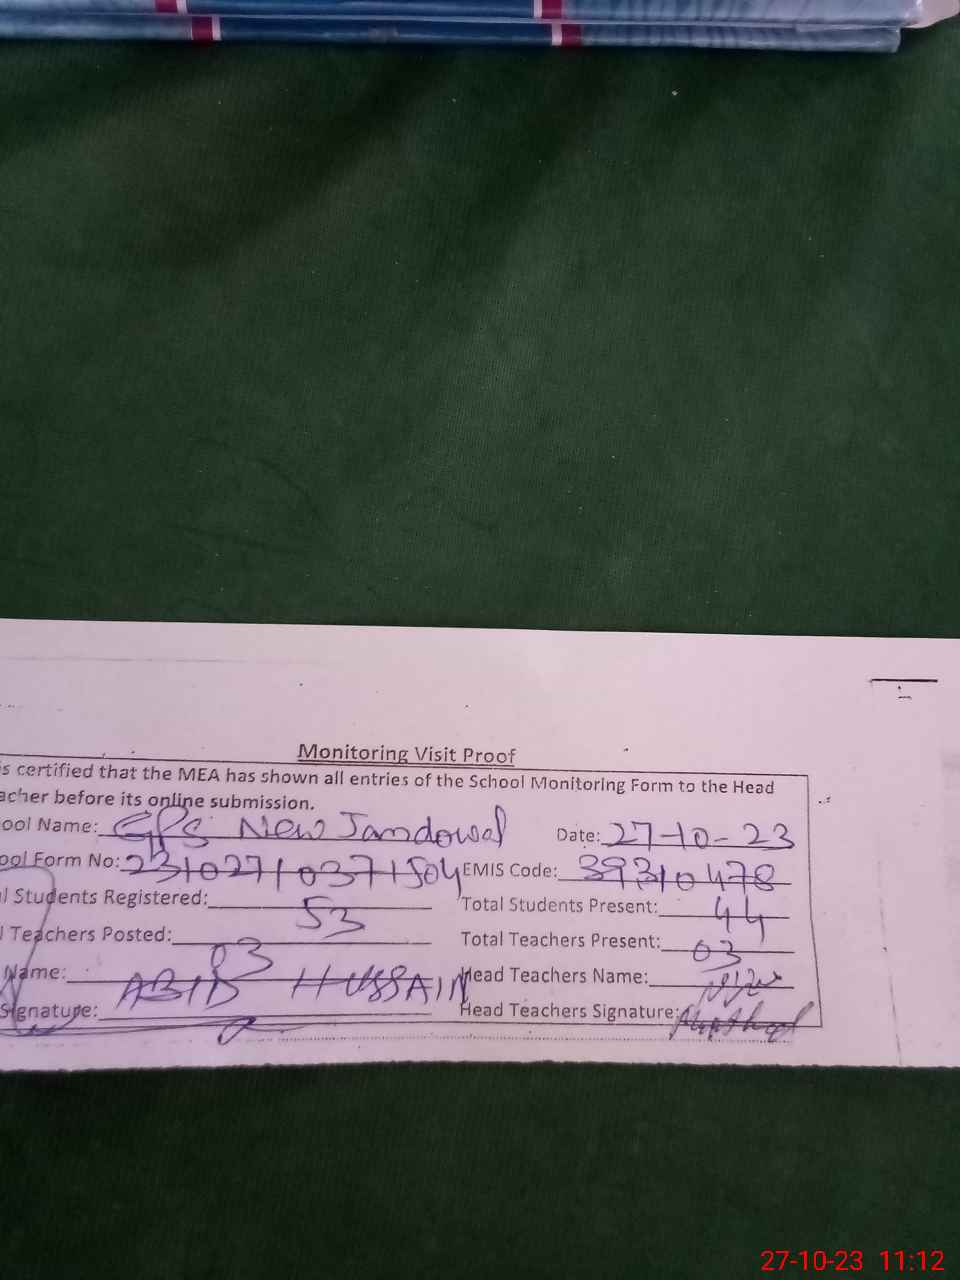 Monitoring Visit Proof
is certified that the MEA has shown all entries of the School Monitoring Form to the Head
acher before its online submission.
ool Name: GPS New Jandowal Date: 27-10-23
ool Form No: 231027103711504 EMIS Code: 39310478
l Students Registered: 53 Total Students Present: 44
l Teachers Posted: 03 Total Teachers Present: 03
Name: ABID HUSSAIN Head Teachers Name:
Signature: Head Teachers Signature:
27-10-23 11:12